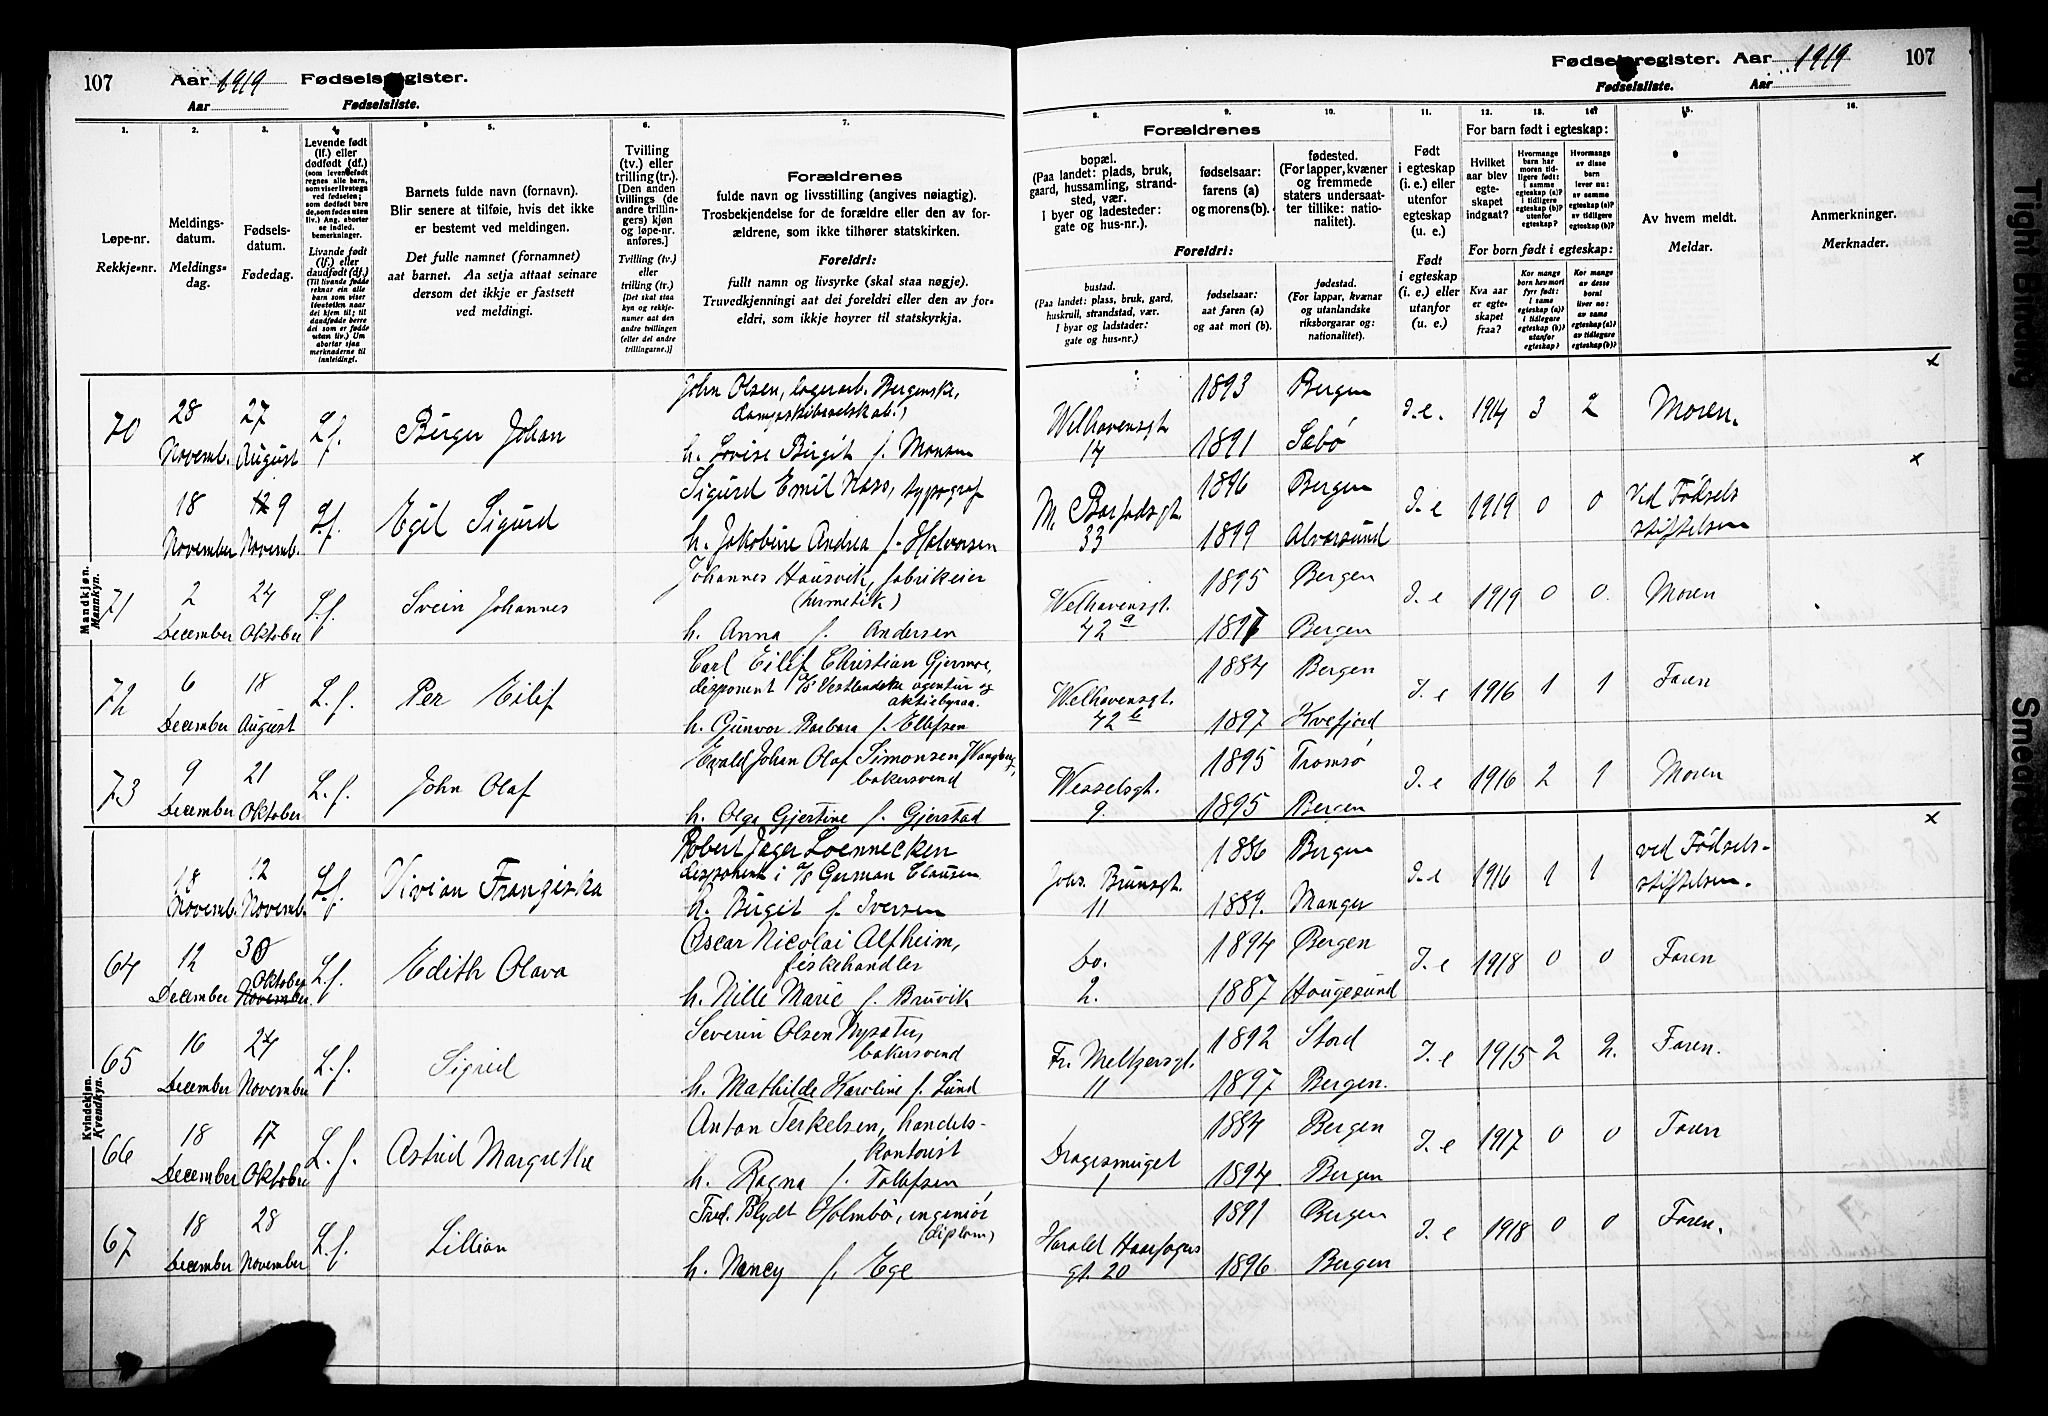 107 Aar 1919 Fødselsregister.
Aar Fødselsliste.
Fødselsregister. Aar 1919 107
Fødselsliste. Aar
1. 2. 3. 4. 5. 6. 7.
Løpe-nr.
Rekkje-nr.
Meldings-
datum.
Meldings-
dag.
Fødsels-
datum.
Fødedag.
Levende født
(lf.) eller
dødfødt (df.)
Livande født
(lf.) eller
daudfødt (df.)
Barnets fulde navn (fornavn).
Blir senere at tilføie, hvis det ikke
er bestemt ved meldingen.
Det fulle namnet (fornamnet)
aat barnet. Aa setja attaat seinare
dersom det ikkje er fastsett
ved meldingi.
Tvilling
(tv.) eller
trilling (tr.).
[Den anden
tvillings (de
andre trillin-
gers) kjøn
og løpe-nr.
anføres.]
Tvilling (tv.)
eller
trilling (tr.)
[Det skal staa
kyn og rekkje-
numer aat den
andre tvillingen
(eller dei andre
trillingarne.)]
Forældrenes
fulde navn og livsstilling (angives nøiagtig).
Trosbekjendelse for de forældre eller den av for-
ældrene, som ikke tilhører statskirken.
Foreldri:
fullt namn og livsyrke (skal staa nøgje).
Truvedkjenningi aat dei foreldri eller den av for-
eldri, som ikkje høyrer til statskyrkja.
8. 9. 10. 11. 12. 13. 14. 15. 16.
Forældrenes
bopæl.
(Paa landet: plads, bruk,
gaard, hussamling, strand-
sted, vær.
I byer og ladesteder:
gate og hus-nr.).
fødselsaar:
farens (a)
og morens (b).
fødested.
(For lapper, kvæner
og fremmede
staters undersaat-
ter tillike: natio-
nalitet).
Foreldri:
bustad.
(Paa landet: plass, bruk, gard,
huskrull, strandstad, vær.
I byar og ladstader:
gate og hus-nr.)
fødselsaar:
aat faren (a)
og aat mori (b).
fødestad.
(For lappar, kvænar
og utanlandske
riksborgarar og:
nationalitet).
Født
i egteskap
(i. e.) eller
utenfor
egteskap
(u. e.)
Født
i egteskap
(i. e.) eller
utanfor
(u. e.)
For barn født i egteskap:
Hvilket
aar blev
egte-
skapet
indgaat?
For born født i egteskap:
Kva aar
er egte-
skapet
fraa?
Av hvem meldt.
Meldar.
Anmerkninger.
Merknader.
Mandkjøn.
Mannkyn.
70 28 Novemb. 27 August L.f. Birger Johan John Olsen, lagerarb. Bergenske
dampskibsselskab.,
h. Lovise Birgit f. Monsen
Welhavensgt. 14 1893 Bergen 1891 Sæbø I.e. 1914 3 2 Moren. x
18 November 9 Novemb. L.f. Egil Sigurd Sigurd Emil Næss, typograf
h. Jakobine Andrea f. Halvorsen
M. Barfodsgt. 33 1896 Bergen 1899 Alversund I.e 1919 0 0 Ved Fødsels
stiftelsen x
71 2 December 24 Oktober L.f. Svein Johannes Johannes Hausvik, fabrikeier
(hermetik)
h. Anna f. Andersen
Welhavensgt. 42 a 1895 Bergen 1897 Bergen I.e 1919 0 0. Moren
72 6 December 18 August L.f. Per Eilif Carl Eilif Christian Gjermoe,
disponent A/S Vestlandske agentur og
aktiebyraa.
h. Gunvor Barbara f. Ellefsen
Welhavensgt. 42 b 1884 Bergen 1897 Kvefjord I.e 1916 1 1 Faren
73 9 December 21 Oktober L.f. John Olaf Ewald Johan Olaf Simonsen Wangberg,
bakersvend
h. Olga Gjertine f. Gjerstad
Wesselsgt. 9. 1895 Tromsø 1895 Bergen I.e 1916 2 1 Moren
Kvindekjøn.
Kvendkyn.
18 Novemb. 12 Novemb. L.f. Vivian Frangiska Robert Jæger Loennecken
disponent i A/S German Clausen
h. Birgit f. Iversen
Johs. Brunsgt. 11 1886 Bergen 1889. Manger I.e 1916 1 1 ved Fødsels-
stiftelsen. x
64 12 December 30 Oktober November L.f. Edith Olava Oscar Nicolai Alfheim,
fiskehandler
h. Nille Marie f. Bruvik
Do. 2. 1894 Bergen 1887 Haugesund I.e 1918 0 0 Faren
65 16 December 24 November L.f. Sigrid Severin Olsen Nysæter,
bakersvend
h. Mathilde Karoline f. Lund
Fr. Meltzersgt. 11 1892 Stord 1897 Bergen. I.e 1915 2 2. Faren.
66 18 December 17 Oktober L.f. Astrid Margrethe Anton Terkelsen, handels-
kontorist
h. Ragna f. Tollefsen
Dragesmuget 1 1884 Bergen 1894 Bergen I.e 1917 0 0 Faren
67 18 December 28 November L.f. Lillian Fred. Blydt Holmbö, ingeniör
(diplom)
h. Nancy f. Ege
Harald Haarfagers
gt. 20 1891 Bergen 1896 Bergen I.e 1918 0 0 Faren.
Tight Binding
Smeared